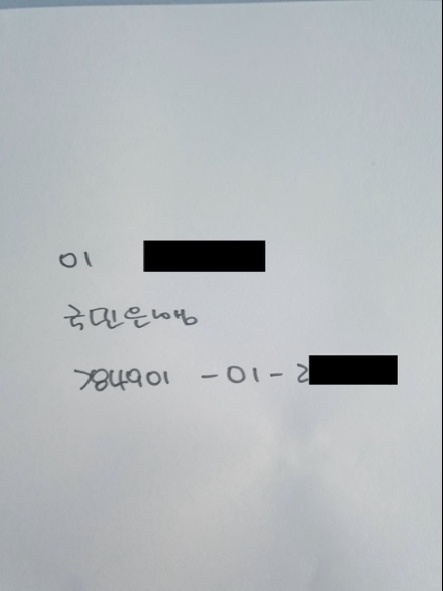 01
국민은행
784901-01-2